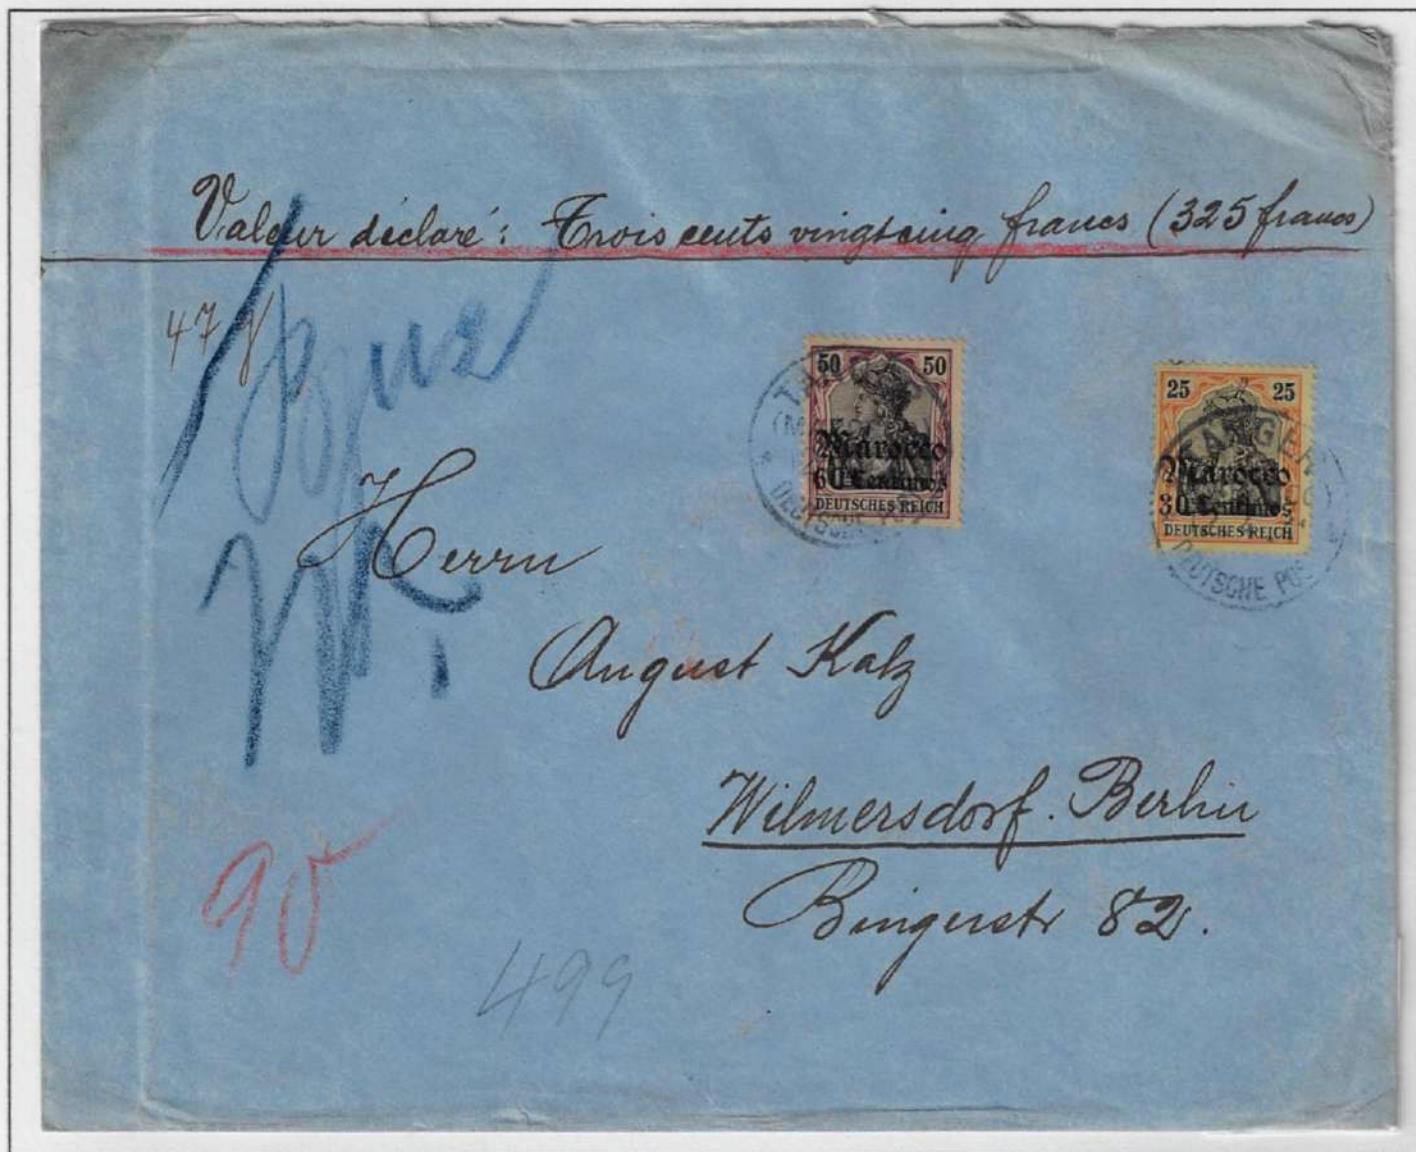 Valeur déclaré: Trois cents vingtcinq francs (325 francs)
47 g
50 50
Marocco
60 Centimos
DEUTSCHES REICH
25 25
Marocco
30 Centimos
DEUTSCHES REICH
TANGER
DEUTSCHE POST
Herrn
August Kalz
Wilmersdorf. Berlin
Bingerstr 82.
90
499